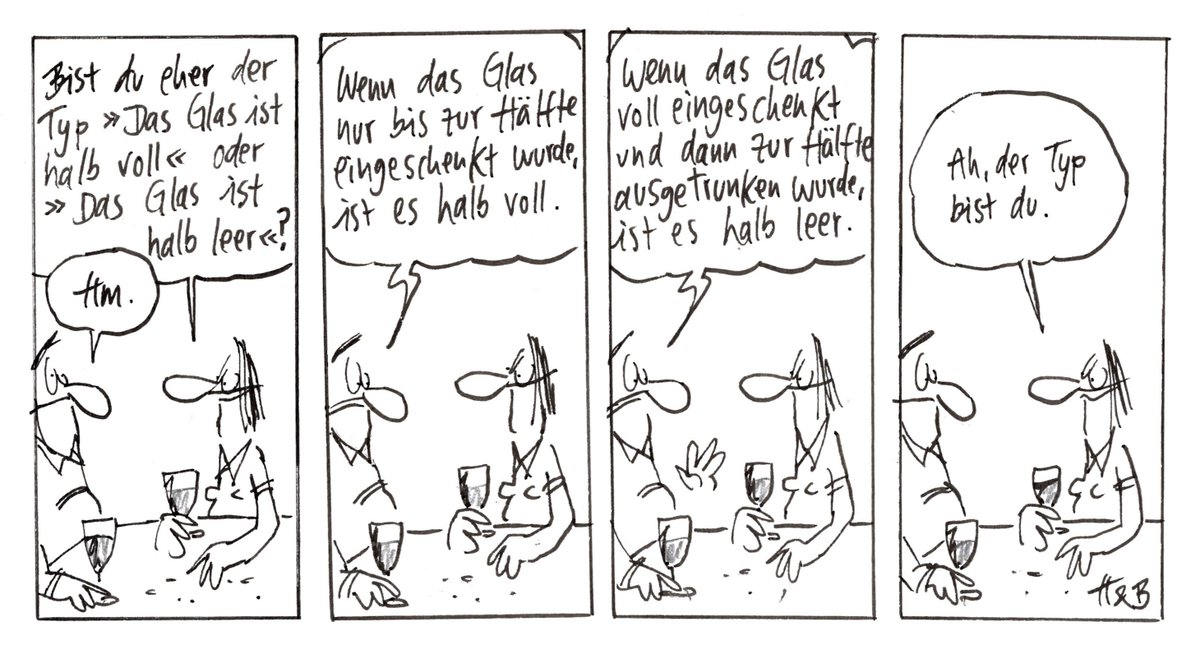 Bist du eher der
Typ »Das Glas ist
halb voll« oder
»Das Glas ist
halb leer«?
Hm.
Wenn das Glas
nur bis zur Hälfte
eingeschenkt wurde,
ist es halb voll.
Wenn das Glas
voll eingeschenkt
und dann zur Hälfte
ausgetrunken wurde,
ist es halb leer.
Ah, der Typ
bist du.
H&B